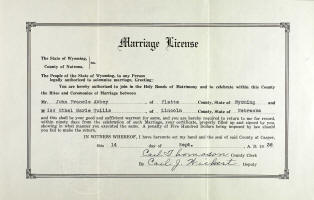 Marriage License
The State of Wyoming,
County of Natrona. } ss.
The People of the State of Wyoming, to any Person
legally authorized to solemnize marriage, Greeting:
You are hereby authorized to join in the Holy Bonds of Matrimony and to celebrate within this County
the Rites and Ceremonies of Marriage between
Mr. John Francis of Platte County, State of Wyoming and
M iss Ethel Marie of Lincoln County, State of Nebraska
and this shall be your good and sufficient warrant for same, and you are hereby required to return to me for record
within ninety days from the celebration of such Marriage, your certificate, properly filled up and signed by you,
showing in what manner you executed the same. A penalty of Five Hundred Dollars being imposed by law should
you fail to make the return.
IN WITNESS WHEREOF, I have hereunto set my hand and the seal of said County at Casper,
this 14 day of Sept. A. D. 19 36
Carl Thomason County Clerk
By Carl J. Deputy